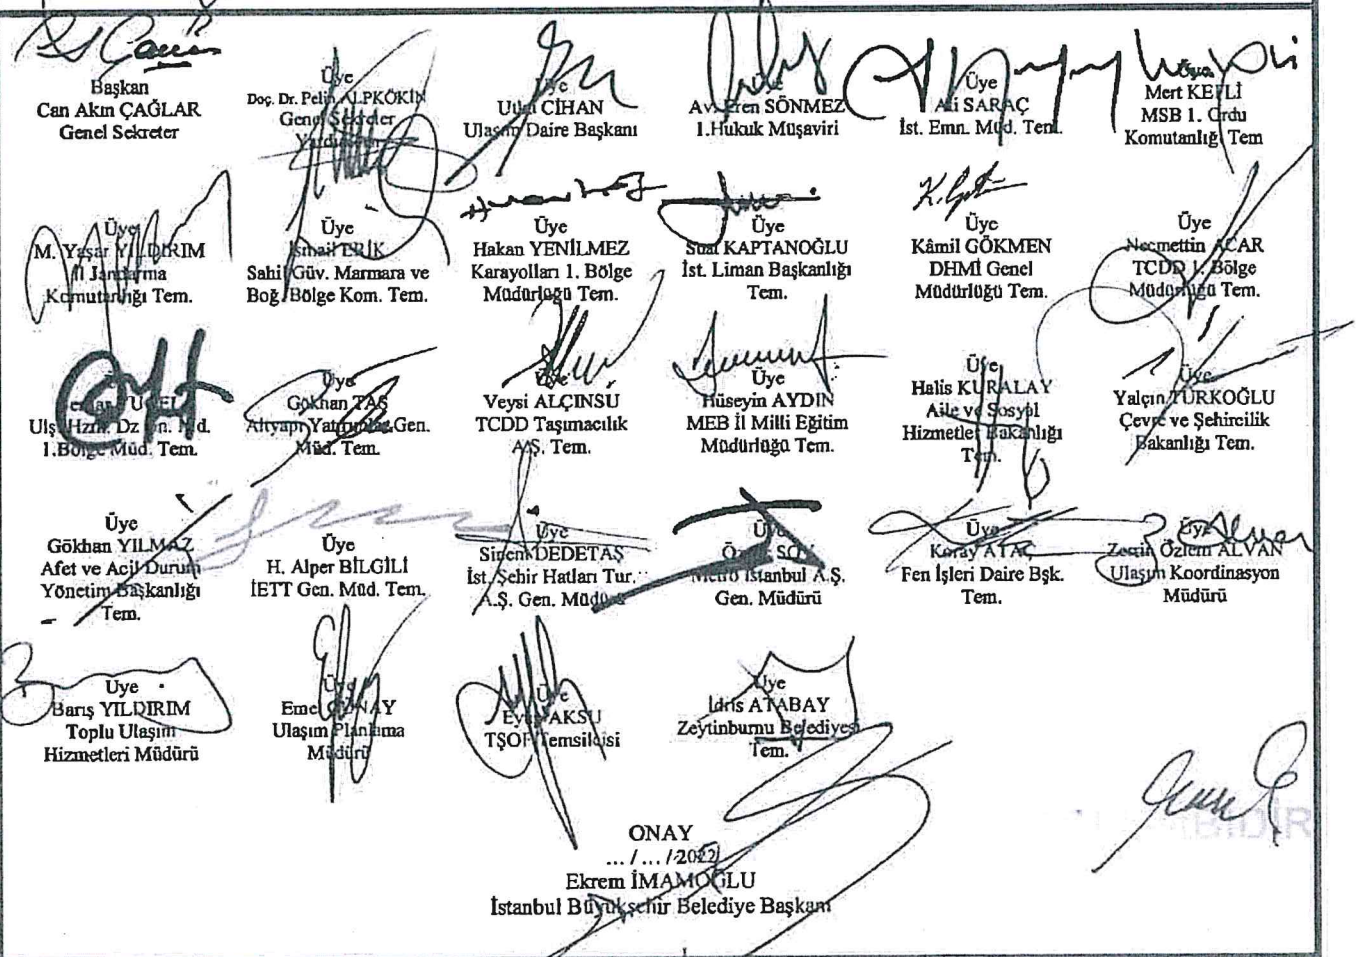 Başkan
Can Akın ÇAĞLAR
Genel Sekreter
Üye
Doç. Dr. Pelin ALPKÖKİN
Genel Sekreter
Üye
Utku CİHAN
Ulaşım Daire Başkanı
Av. Eren SÖNMEZ
1.Hukuk Müşaviri
Üye
Ali SARAÇ
İst. Emn. Müd. Tem.
Üye
Mert KEFLİ
MSB 1. Ordu
Komutanlığı Tem
Üye
M. Yaşar YILDIRIM
İl Jandarma
Komutanlığı Tem.
Üye
İsmail ERİK
Sahil Güv. Marmara ve
Boğ. Bölge Kom. Tem.
Üye
Hakan YENİLMEZ
Karayolları 1. Bölge
Müdürlüğü Tem.
Üye
Suat KAPTANOĞLU
İst. Liman Başkanlığı
Tem.
Üye
Kâmil GÖKMEN
DHMİ Genel
Müdürlüğü Tem.
Üye
Necmettin ACAR
TCDD 1. Bölge
Müdürlüğü Tem.
1.Bölge Müd. Tem.
Üye
Gökhan TAŞ
Altyapı Yatırımlar Gen.
Müd. Tem.
Üye
Veysi ALÇINSU
TCDD Taşımacılık
A.Ş. Tem.
Üye
Hüseyin AYDIN
MEB İl Milli Eğitim
Müdürlüğü Tem.
Üye
Halis KURALAY
Aile ve Sosyal
Hizmetler Bakanlığı
Tem.
Üye
Yalçın TÜRKOĞLU
Çevre ve Şehircilik
Bakanlığı Tem.
Üye
Gökhan YILMAZ
Afet ve Acil Durum
Yönetim Başkanlığı
Tem.
Üye
H. Alper BİLGİLİ
İETT Gen. Müd. Tem.
Üye
Sinem DEDETAŞ
İst. Şehir Hatları Tur.
A.Ş. Gen. Müdürü
Üye
Metro İstanbul A.Ş.
Gen. Müdürü
Üye
Koray ATAÇ
Fen İşleri Daire Bşk.
Tem.
Üye
Özlem ALVAN
Ulaşım Koordinasyon
Müdürü
Üye
Barış YILDIRIM
Toplu Ulaşım
Hizmetleri Müdürü
Üye
Ulaşım Planlama
Müdürü
Üye
Eyüp AKSU
TŞOF Temsilcisi
Üye
İdris ATABAY
Zeytinburnu Belediyesi
Tem.
ONAY
... / ... /2022
Ekrem İMAMOĞLU
İstanbul Büyükşehir Belediye Başkanı